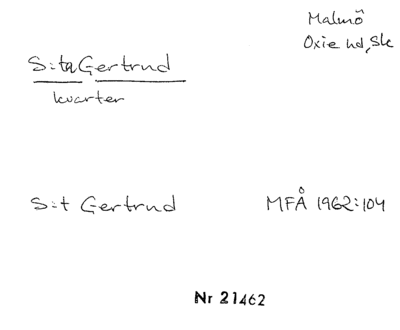 Malmö
Oxie hd, Sk
S:ta Gertrud
kvarter
S:t Gertrud
MFÅ 1962:104
Nr 21462